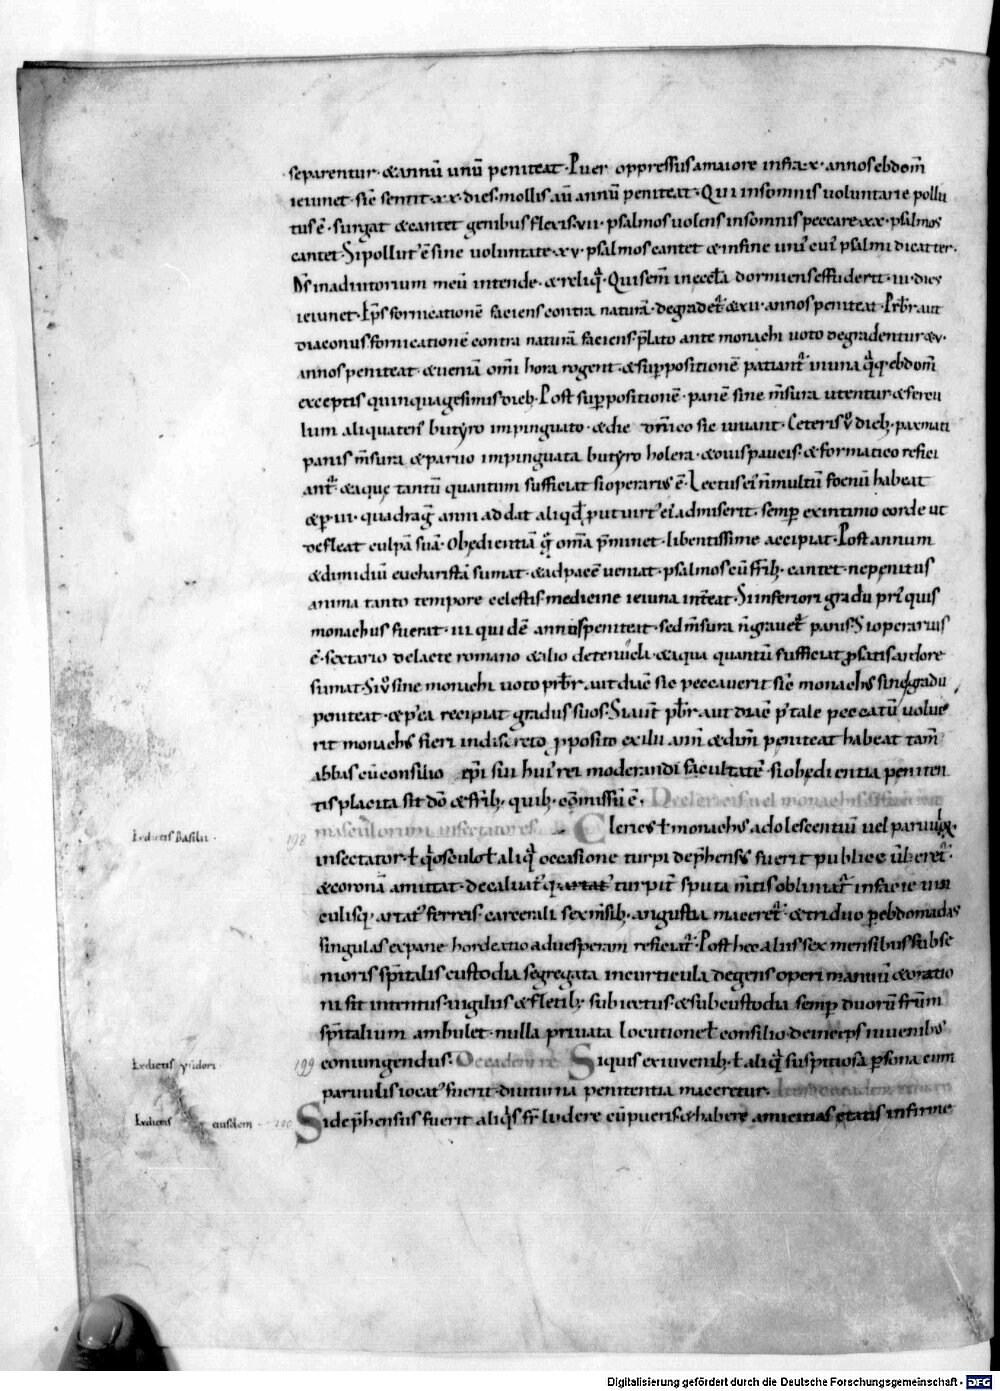 separentur · & annū unū peniteat · Puer oppressus a maiore infra · x · annos ebdom̄
ieiunet · sic̄ sentit · x · x · dies · mollis aū annū peniteat · Qui in somnis voluntarie pollu
tus ē · surgat & cantet genibus flexis · vii · psalmos uolens in somnis peccare · xx · psalmos
cantet · Si pollut' ē sine voluntate · xv · psalmos cantet & in fine uni' cui' psalmi dicat ter ·
Ds̄ in adiutorium meū intende · & reliq̄ · Qui sem̄ in eccl̄a dormiens effuderit · iii · dies
ieiunet · Ep̄s fornicationē faciens contra naturā · degradet' & xii · annos peniteat · Pr̄br aut
diaconus fornicationē contra naturā faciens · p̄lato ante monachi voto degradentur & v ·
annos peniteat · & ueniā om̄i hora rogent · & suppositionē patiant' in una q̄q · ebdom̄
exceptis quinquagesimis dieb; · Post suppositionē · panē sine m̄sura utentur & fercu
lum aliquateis butyro impinguato · & die dn̄ico sic uiuant · Ceteris ṽ dieb; · paxmati
panis m̄sura & paruo impinguata butyro holera · & ouis paucis · & formatico refici
ant' · & aque tantū quantum sufficiat si operarius ē · Lectus ei n̄ multū foenū habeat
& p̄ · iii · quadrag̅ anni addat aliqd̄ put uirt' ei admiserit · semp̄ ex intimo corde ut
defleat culpā suā · Obedientiā q̄ om̄a p̄minet · libentissime accipiat · Post annum
& dimidiū eucharistā sumat · & ad pacē ueniat · psalmos cū fr̄ib; · cantet · ne penitus
anima tanto tempore celestis · medicine ieiuna int̄eat · Si inferiori gradu pri' quis
monachus fuerat · iii quidē annis peniteat · sed m̄sura n̄ grauet̄ panis · Si operarius
ē · sextario de lacte romano & alio de tenucla · & aqua quantū sufficiat p̱ satis ardore
sumat · Si ṽ sine monachi uoto pr̄br aut diac̄ sic peccauerit sic̄ monach's sine gradu
peniteat · & p'ea recipiat gradus suos · Si aut̄ pb̄r aut diac̄ p' tale peccatū uolue
rit monach's fieri indiscreto p̱posito exilii anni & dim̄ peniteat habeat tam̄
abbas cū consilio ep̄i sui hui' rei moderandi facultatē si obedientia peniten
tis placita sit dō & fr̄ib; · quib; · cōmissū ē · De clericis uel monachis si fuerint
masculorum insectatores
Ludicis Basilii · 198 Cleric's ł monach's adolescentiū uel paruulor̄ ·
insectator · ł q̄ osculo ł aliq̄ occasione turpi dep̄hens's fuerit publice ūberet̄ ·
& coronā amittat · decaluat' q · artat' turpit̄ sputa m̄tis obliniat' in facie uin
culisq; artat' ferreis · carcerali sex m̄sib; · angustia maceret̄ · & triduo p̄ ebdomadas
singulas ex pane hordeacio ad uesperam reficiat' · Post hec aliis sex mensibus sub se
nioris sp̄italis custodia segregata in curticula degens operi manuū & oratio
ni sit intentus · uigiliis & fletib; · subiectus · & sub custodia semp̄ duorū fr̄um
sp̄italium ambulet · nulla priuata locutione ł consilio · deinceps iuuenib's
Ludictis ysidori · 199 coniungendus · De eadem re Si quis ex iuuenib; · ł aliq̄ suspitiosa p̱sona cum
paruulis iocat' fuerit · diutina penitentia maceretur · Item de eadem re
Ludictis eiusdem · 200 Si dep̄hensus fuerit aliq's fr̄ ludere cū pueris · & habere amicitias etatis infirme
Digitalisierung gefördert durch die Deutsche Forschungsgemeinschaft - DFG